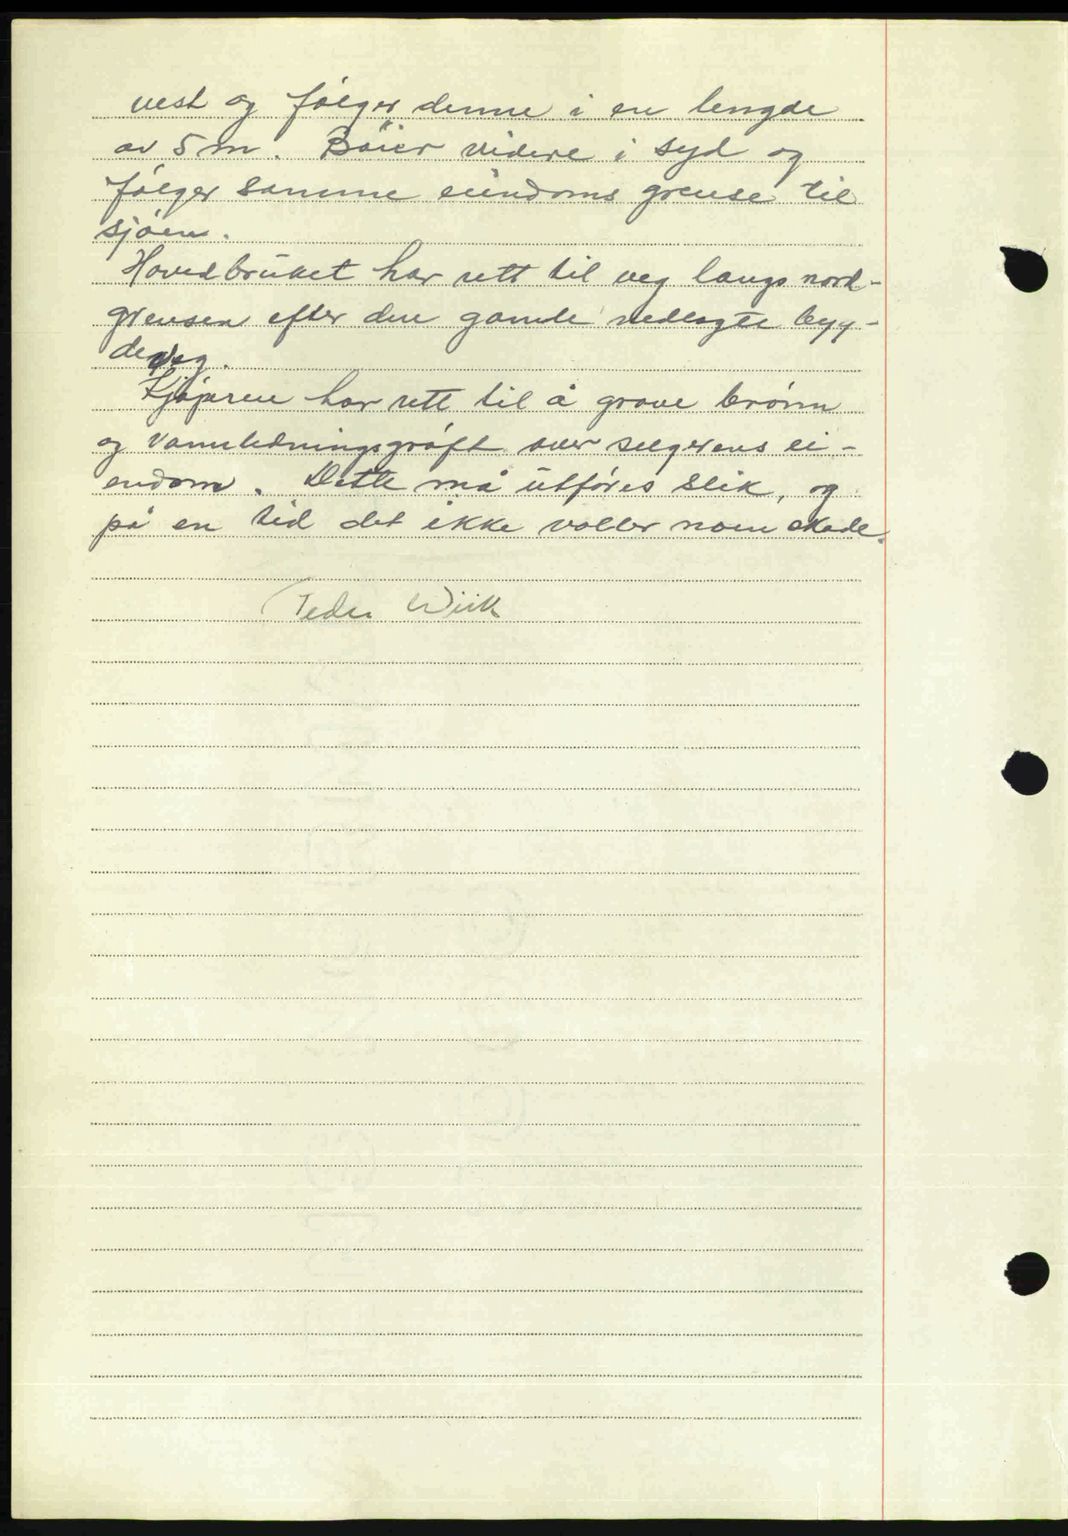 vest og følger denne i en lengde
av 5 m. Bøier videre i syd og
følger samme eiindoms grense til
sjøen.
Hovedbruket har rett til veg langs nord-
grensen efter den gamle nedlagte byg-
deveg.
Kjøperen har rett til å grave brønn
og vannledningsgrøft over selgerens ei-
endom. Dette må utføres slik, og
på en tid det ikke volder noen skade.
Peder Wiik